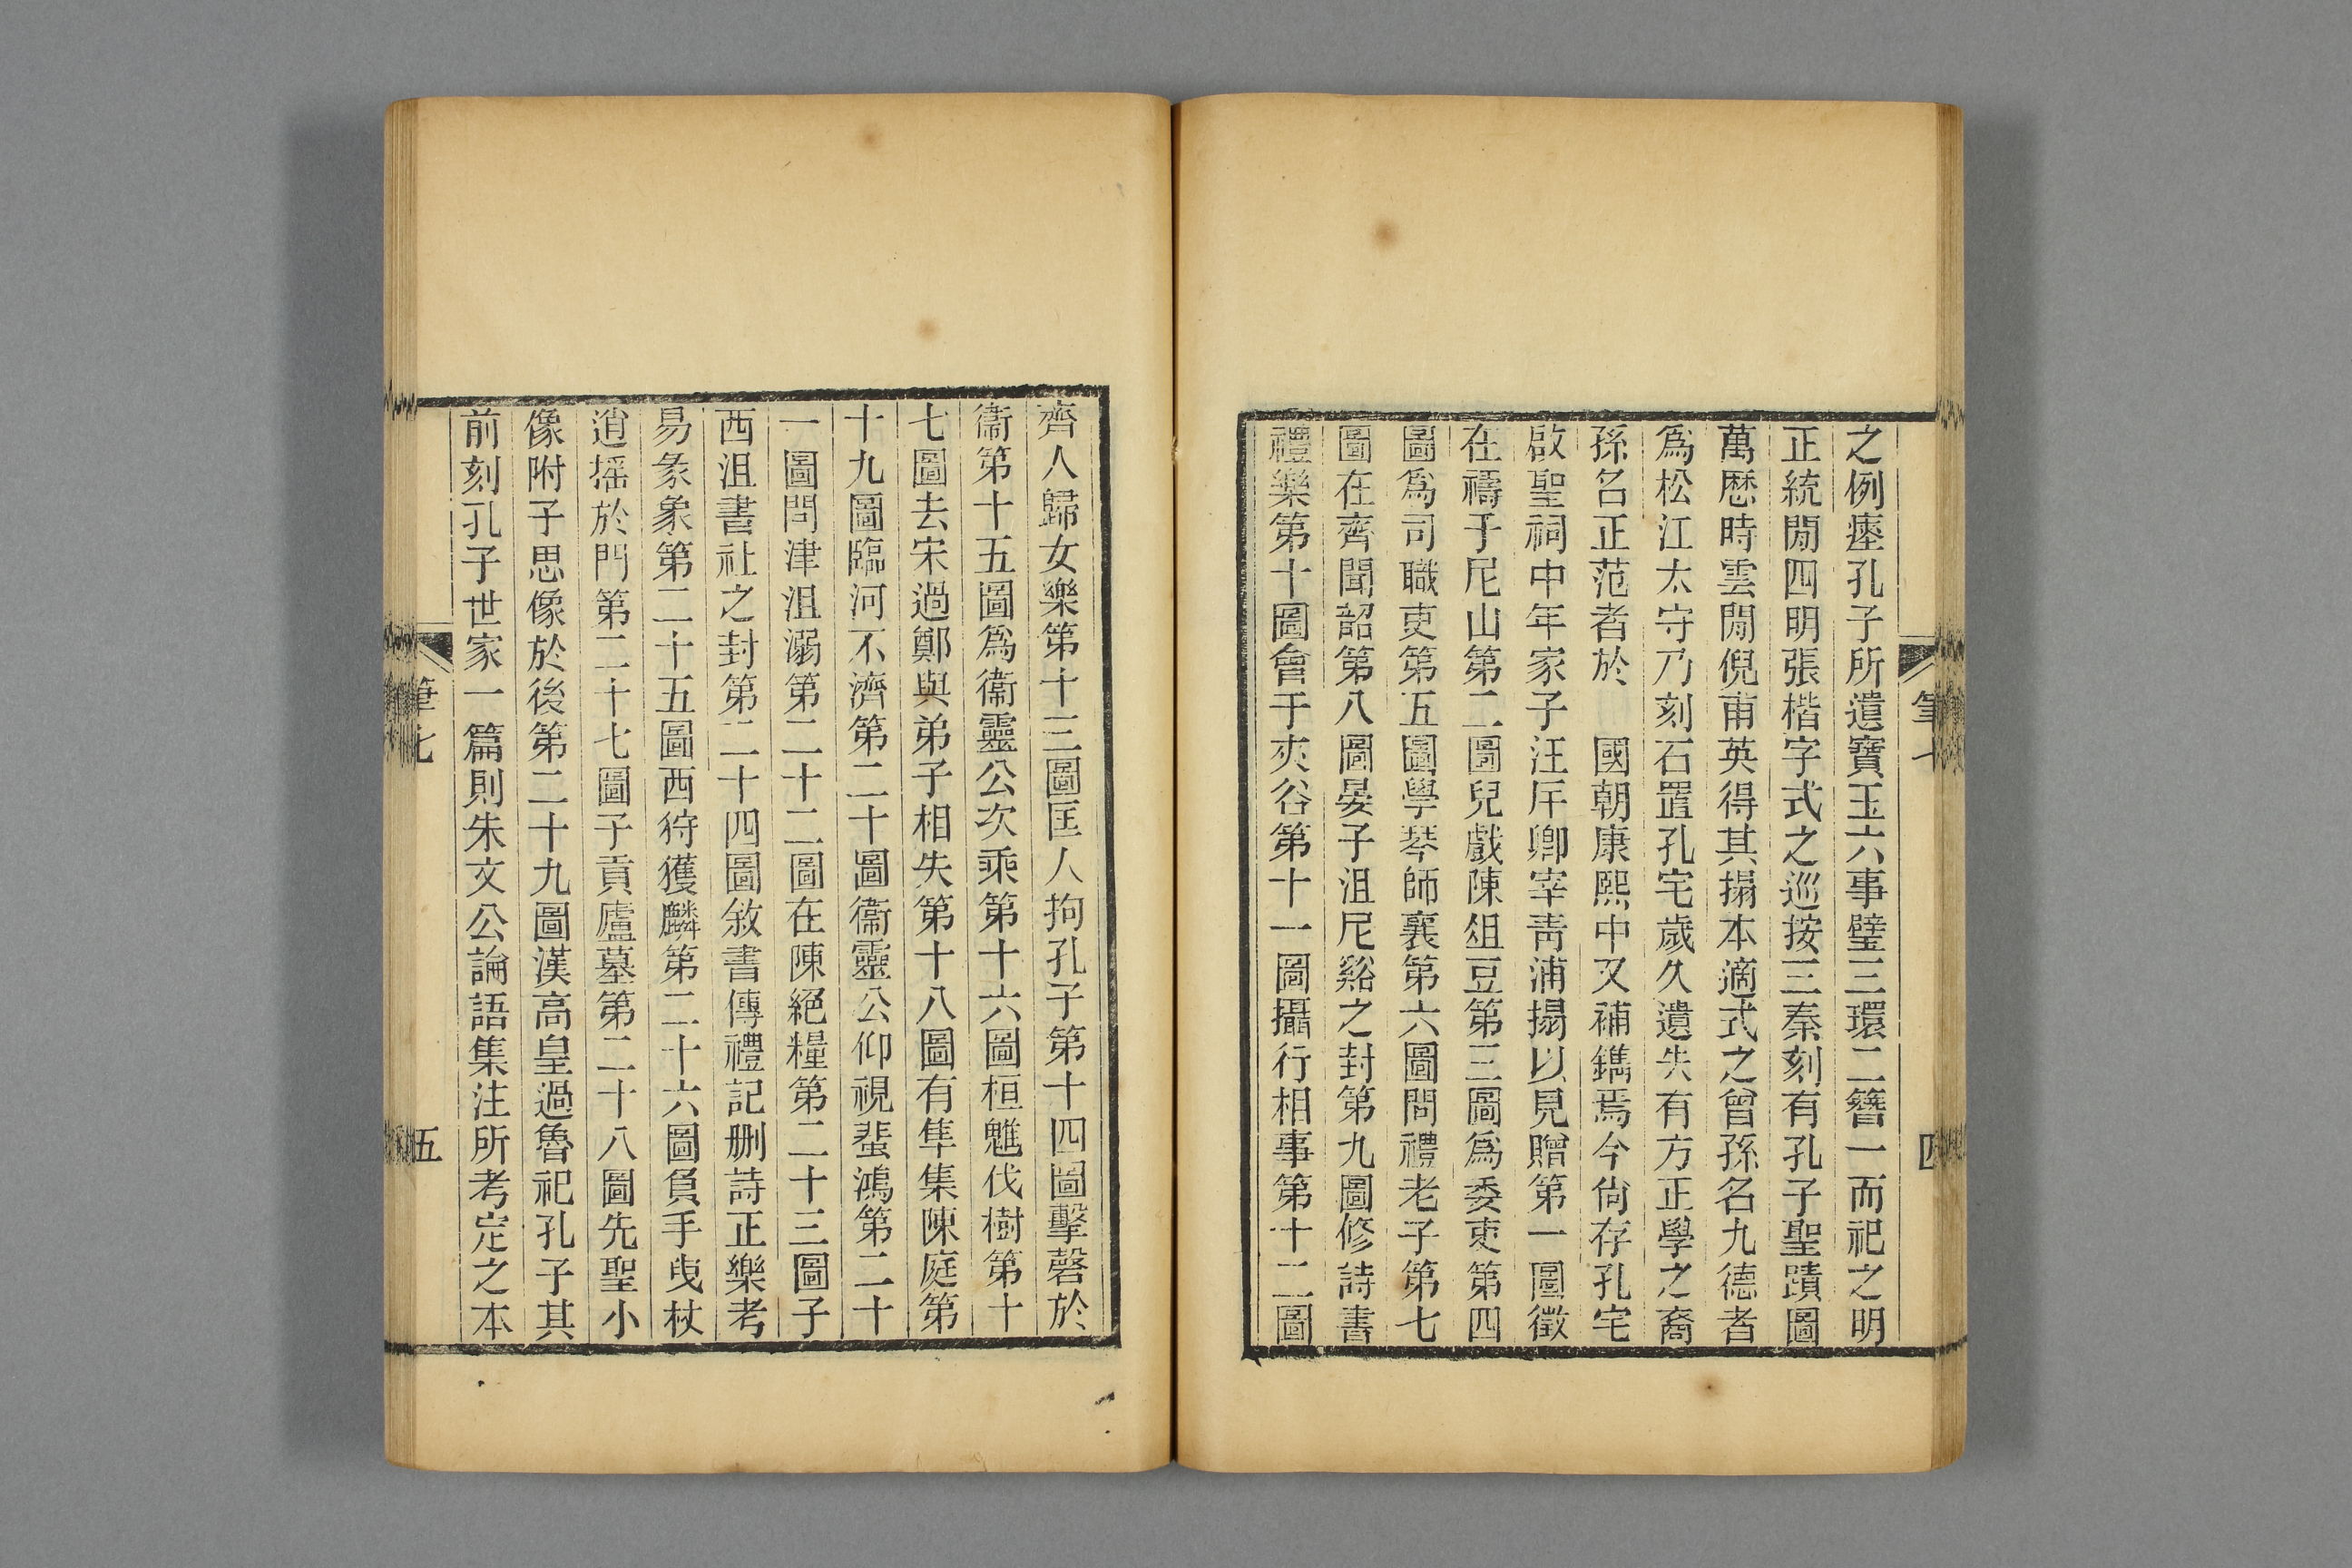 之例瘞孔子所遺寶玉六事璧三環二簪一而祀之明
正統閒四明張楷字式之巡按三秦刻有孔子聖蹟圖
萬厯時雲閒倪甫英得其搨本適式之曾孫名九德者
爲松江太守乃刻石置孔宅歲久遺失有方正學之裔
孫名正范者於 國朝康熙中又補鐫焉今尙存孔宅
啟聖祠中年家子汪厈卿宰靑浦搨以見贈第一圖徵
在禱于尼山第二圖兒戲陳俎豆第三圖爲委吏第四
圖爲司職吏第五圖學琴師襄第六圖問禮老子第七
圖在齊聞韶第八圖晏子沮尼谿之封第九圖修詩書
禮樂第十圖會于夾谷第十一圖攝行相事第十二圖
筆七
四
齊人歸女樂第十三圖匡人拘孔子第十四圖擊磬於
衞第十五圖爲衞靈公次乘第十六圖桓魋伐樹第十
七圖去宋過鄭與弟子相失第十八圖有隼集陳庭第
十九圖臨河不濟第二十圖衞靈公仰視蜚鴻第二十
一圖問津沮溺第二十二圖在陳絕糧第二十三圖子
西沮書社之封第二十四圖敘書傳禮記刪詩正樂考
易彖象第二十五圖西狩獲麟第二十六圖負手曳杖
逍搖於門第二十七圖子貢廬墓第二十八圖先聖小
像附子思像於後第二十九圖漢高皇過魯祀孔子其
前刻孔子世家一篇則朱文公論語集注所考定之本
筆七
五